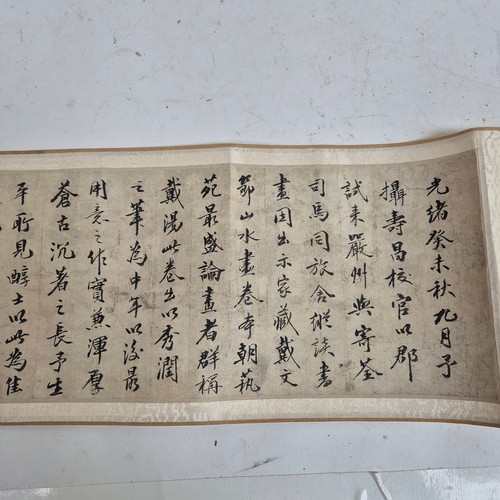 光緒癸未秋九月予
攝壽昌校官以郡
試來嚴州與寄荃
司馬同旅舍縱談書
畫因出示家藏戴文
節山水畫卷本朝藝
苑最盛論畫者群稱
戴湯此卷出以秀潤
之筆為中年以後最
用意之作實兼渾厚
蒼古沉著之長予生
平所見醇士以此為佳